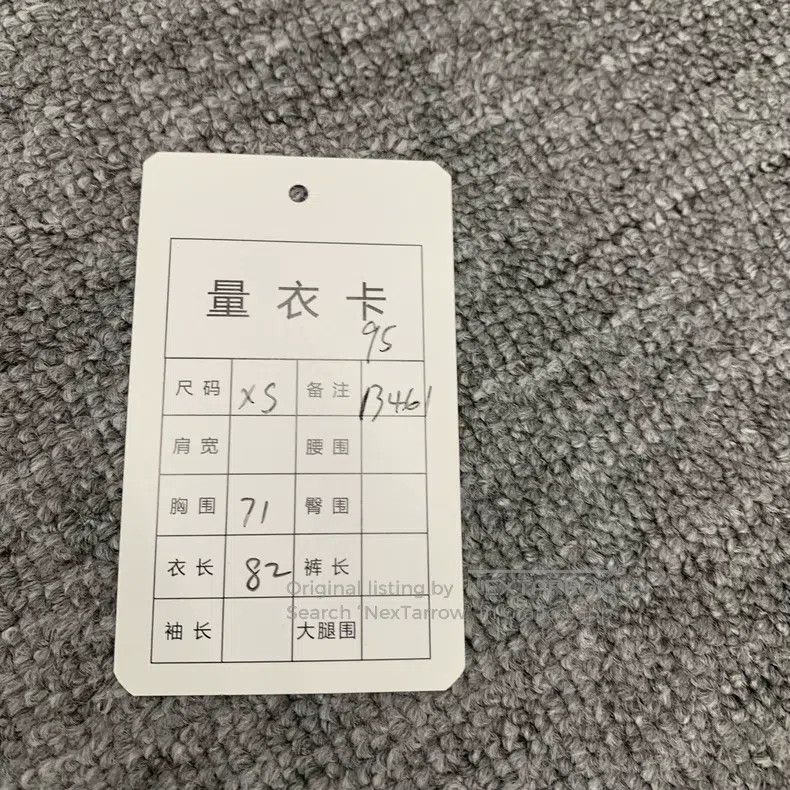 量衣卡
95
尺码 XS 备注 B461
肩宽 腰围
胸围 71 臀围
衣长 82 裤长
袖长 大腿围
Original listing by
Search 'NexTarrow'